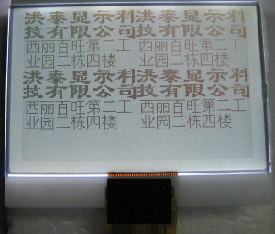 洪泰显示科洪泰显示科
技有限公司技有限公司
西丽百旺第二工 西丽百旺第二工
业园二栋四楼 业园二栋四楼
洪泰显示科洪泰显示科
技有限公司技有限公司
西丽百旺第二工 西丽百旺第二工
业园二栋四楼 业园二栋四楼